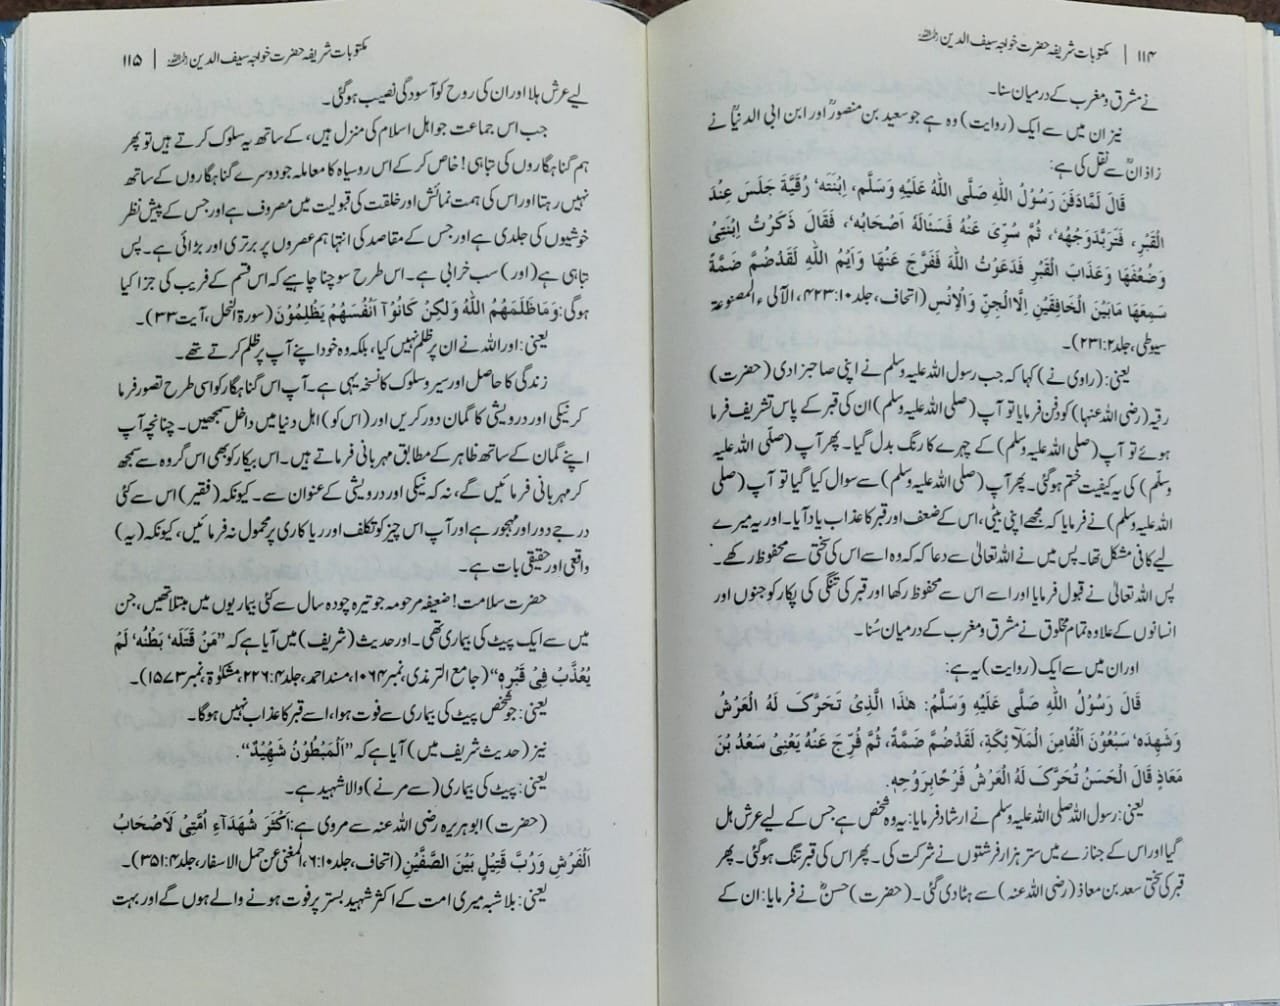 ۱۱۴ | مکتوبات شریفہ حضرت خواجہ سیف الدین رحمہ اللہ
نے مشرق و مغرب کے درمیان سنا۔
نیز ان میں سے ایک (روایت) وہ ہے جو سعید بن منصورؒ اور ابن ابی الدنیاؒ نے
زاذانؒ سے نقل کی ہے:
قَالَ لَمَّادَفَنَ رَسُوْلُ اللهِ صَلَّى اللهُ عَلَيْهِ وَسَلَّم، اِبْنَتَه‘ رُقَيَّةَ جَلَسَ عِنْدَ
الْقَبْرِ، فَتَرَبَّدَوَجْهُه‘، ثُمَّ سُرِّىَ عَنْهُ فَسَئَالَهُ اَصْحَابُه‘، فَقَالَ ذَكَرْتُ اِبْنَتِىْ
وَضُعْفَهَا وَعَذَابَ الْقَبْرِ فَدَعَوْتُ اللهَ فَفَرَّجَ عَنْهَا وَاَيْمُ اللهِ لَقَدْضُمَّ ضَمَّةً
سَمِعَهَا مَابَيْنَ الْخَافِقَيْنِ اِلَّاالْجِنِّ وَالْاِنْسِ (اتحاف، جلد۱۰:۴۲۳، الآلی ء المصنوعۃ
سیوطی، جلد۲:۲۳۱)۔
یعنی: (راوی نے) کہا کہ جب رسول اللہ صلی اللہ علیہ وسلم نے اپنی صاحبزادی (حضرت)
رقیہ (رضی اللہ عنہا) کو دفن فرمایا تو آپ (صلی اللہ علیہ وسلم) ان کی قبر کے پاس تشریف فرما
ہوئے تو آپ (صلی اللہ علیہ وسلم) کے چہرے کا رنگ بدل گیا۔ پھر آپ (صلی اللہ علیہ
وسلم) کی یہ کیفیت ختم ہوگئی۔ پھر آپ (صلی اللہ علیہ وسلم) سے سوال کیا گیا تو آپ (صلی
اللہ علیہ وسلم) نے فرمایا کہ مجھے اپنی بیٹی، اس کے ضعف اور قبر کا عذاب یاد آیا۔ اور یہ میرے
لیے کافی مشکل تھا۔ پس میں نے اللہ تعالیٰ سے دعا کہ کہ وہ اسے اس کی سختی سے محفوظ رکھے۔
پس اللہ تعالیٰ نے قبول فرمایا اور اسے اس سے محفوظ رکھا اور قبر کی تنگی کی پکار کو جنوں اور
انسانوں کے علاوہ تمام مخلوق نے مشرق و مغرب کے درمیان سُنا۔
اور ان میں سے ایک (روایت) یہ ہے:
قَالَ رَسُوْلُ اللهِ صَلَّى عَلَيْهِ وَسَلَّمُ: هٰذَا الَّذِىْ تَحَرَّكَ لَهُ الْعَرْشُ
وَشَهِدَه‘ سَبْعُوْنَ اَلْفًامِنَ الْمَلَآئِكَةِ، لَقَدْضُمَّ ضَمَّةً، ثُمَّ فُرِّجَ عَنْهُ يَعْنِىْ سَعْدُ بْنَ
مَعَاذٍ قَالَ الْحَسَنُ تُحَرَّكَ لَهُ الْعَرْشُ فَرْحًابِرَوْحِهٖ.
یعنی: رسول اللہ صلی اللہ علیہ وسلم نے ارشاد فرمایا: یہ وہ شخص ہے جس کے لیے عرش ہل
گیا اور اس کے جنازے میں ستر ہزار فرشتوں نے شرکت کی۔ پھر اس کی قبر تنگ ہوگئی۔ پھر
قبر کی سختی سعد بن معاذ (رضی اللہ عنہ) سے ہٹا دی گئی۔ (حضرت) حسنؓ نے فرمایا: ان کے
مکتوبات شریفہ حضرت خواجہ سیف الدین رحمہ اللہ | ۱۱۵
لیے عرش ہلا اور ان کی روح کو آسودگی نصیب ہوگئی۔
جب اس جماعت جو اہل اسلام کی منزل ہیں، کے ساتھ یہ سلوک کرتے ہیں تو پھر
ہم گناہگاروں کی تباہی! خاص کر کے اس روسیاہ کا معاملہ جو دوسرے گناہگاروں کے ساتھ
نہیں رہتا اور اس کی ہمت نمائش اور خلقت کی قبولیت میں مصروف ہے اور جس کے پیش نظر
خوشیوں کی جلدی ہے اور جس کے مقاصد کی انتہا ہم عصروں پر برتری اور بڑائی ہے۔ پس
تباہی ہے (اور) سب خرابی ہے۔ اس طرح سوچنا چاہیے کہ اس قسم کے فریب کی جزا کیا
ہوگی: وَمَاظَلَمَهُمُ اللهُ وَلٰكِنْ كَانُوْآ اَنْفُسَهُمْ يَظْلِمُوْنَ (سورۃ النحل، آیت ۳۳)۔
یعنی: اور اللہ نے ان پر ظلم نہیں کیا، بلکہ وہ خود اپنے آپ پر ظلم کرتے تھے۔
زندگی کا حاصل اور سیر و سلوک کا نسخہ یہی ہے۔ آپ اس گناہگار کو اسی طرح تصور فرما
کر نیکی اور درویشی کا گمان دور کریں اور (اس کو) اہل دنیا میں داخل سمجھیں۔ چنانچہ آپ
اپنے گمان کے ساتھ ظاہر کے مطابق مہربانی فرماتے ہیں۔ اس بیکار کو بھی اس گروہ سے سمجھ
کر مہربانی فرمائیں گے، نہ کہ نیکی اور درویشی کے عنوان سے۔ کیونکہ (فقیر) اس سے کئی
درجے دور اور مہجور ہے اور آپ اس چیز کو تکلف اور ریاکاری پر محمول نہ فرمائیں، کیونکہ (یہ)
واقعی اور حقیقی بات ہے۔
حضرت سلامت! ضعیفہ مرحومہ جو تیرہ چودہ سال سے کئی بیماریوں میں مبتلا تھیں، جن
میں سے ایک پیٹ کی بیماری تھی۔ اور حدیث (شریف) میں آیا ہے کہ ”مَنْ قَتَلَه‘ بَطْنُه‘ لَمْ
يُعَذَّبْ فِىْ قَبْرِهٖ“ (جامع الترمذی، نمبر ۱۰۶۴، مسند احمد، جلد۴:۲۲۶، مشکوٰۃ، نمبر ۱۵۷۳)۔
یعنی: جو شخص پیٹ کی بیماری سے فوت ہوا، اسے قبر کا عذاب نہیں ہوگا۔
نیز (حدیث شریف میں) آیا ہے کہ ”اَلْمَبْطُوْنُ شَهِيْدٌ“۔
یعنی: پیٹ کی بیماری (سے مرنے) والا شہید ہے۔
(حضرت) ابوہریرہ رضی اللہ عنہ سے مروی ہے: اَكْثَرَ شُهَدَآءِ اُمَّتِىْ لَاَصْحَابُ
الْفَرْشِ وَرُبَّ قَتِيْلٍ بَيْنَ الصَّفَّيْنِ (اتحاف، جلد۱۰:۶، المغنی عن حمل الاسفار، جلد۴:۳۵۱)۔
یعنی: بلاشبہ میری امت کے اکثر شہید بستر پر فوت ہونے والے ہوں گے اور بہت